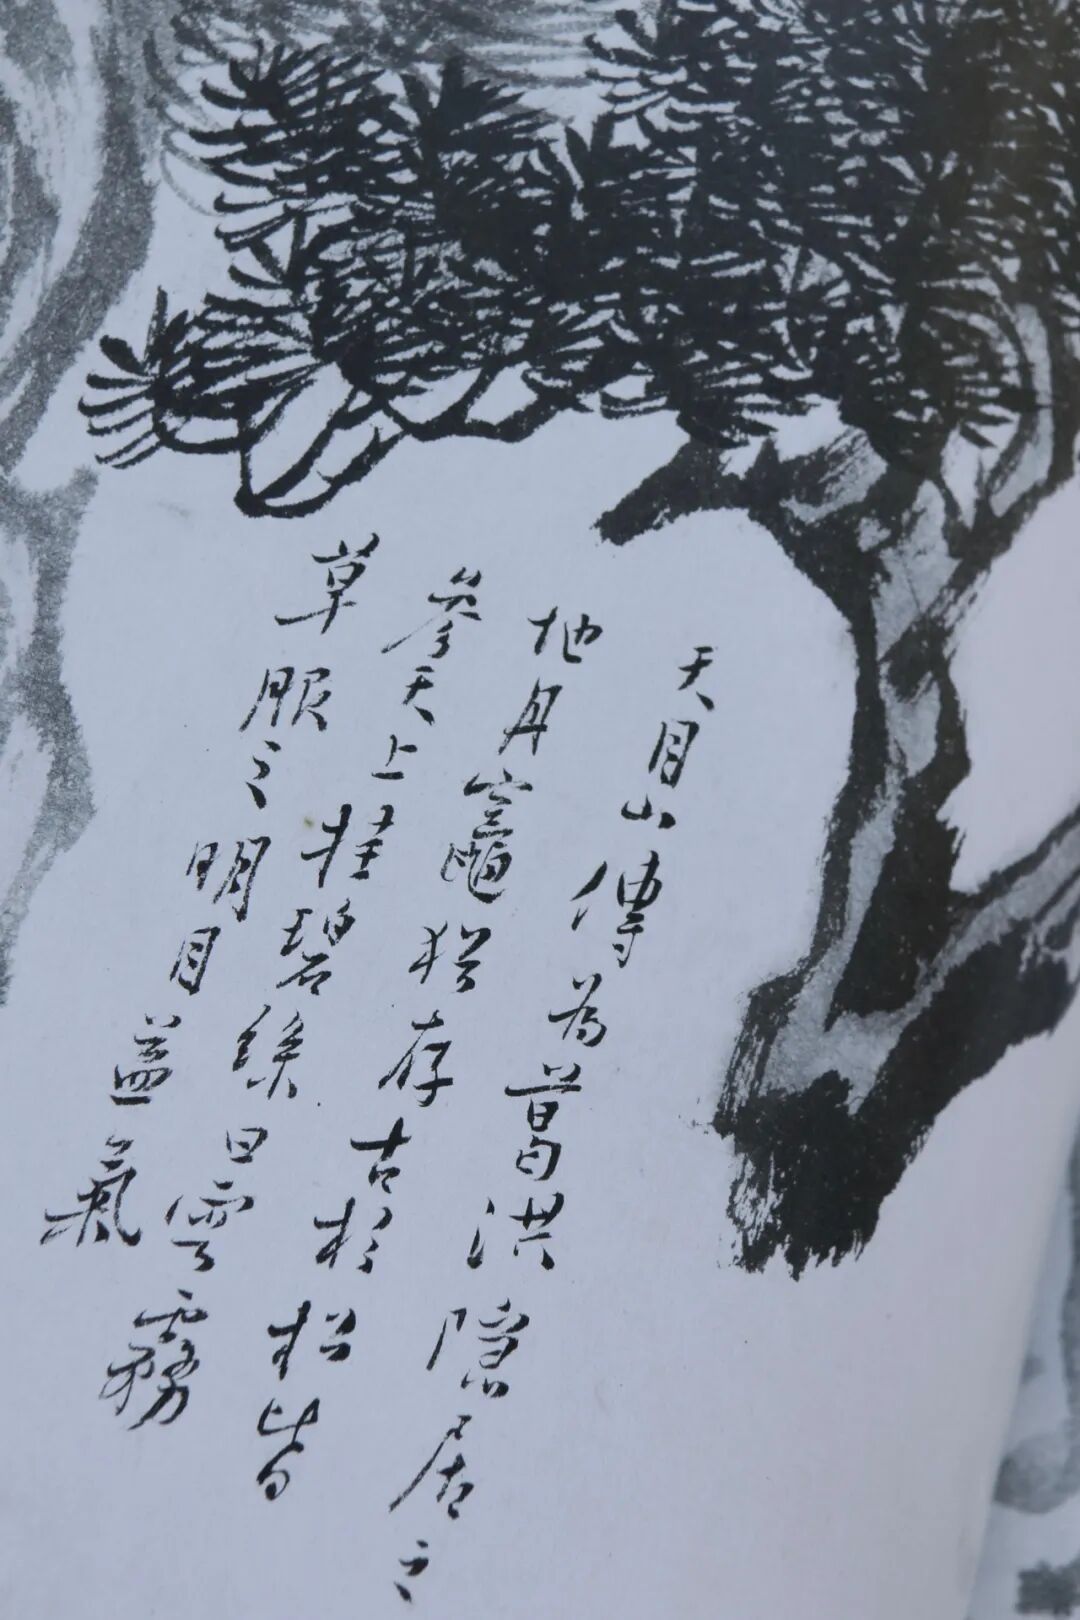 天目山傳為葛洪隱居之
地丹竈猶存古杉松皆
參天上挂碧絲曰雲霧
草服之明目益氣